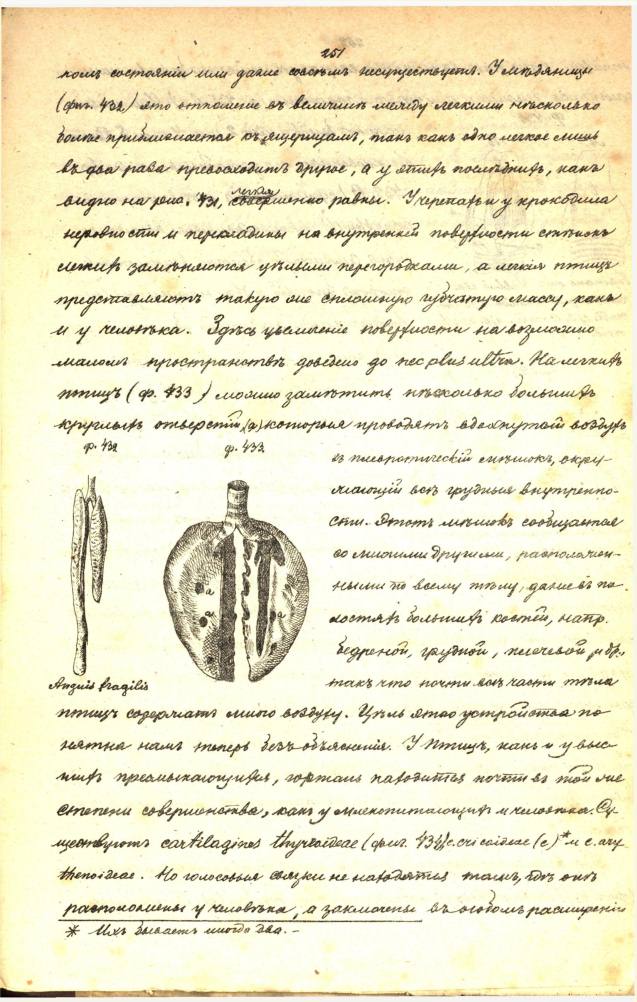 251
номъ состояніи или даже совсѣмъ несуществуетъ. У мѣдяницы
(фиг. 432) это отношеніе въ величинѣ между легкими нѣсколько
болѣе приближается къ ящерицамъ, такъ какъ одно легкое лишь
въ два раза превосходитъ другое, а у этихъ послѣднихъ, какъ
видно на рис. 431, легкія совершенно равны. У черепахъ и у крокодила
неровности и перекладины на внутренней поверхности стѣнокъ
легкихъ замѣняются цѣлыми перегородками, а легкія птицъ
представляютъ такую же сплошную губчатую массу, какъ
и у человѣка. Здѣсь увеличеніе поверхности на возможно
маломъ пространствѣ доведено до nec plus ultra. На легкихъ
птицъ (ф. 433) можно замѣтить нѣсколько большихъ
круглыхъ отверстій, (а) которыя проводятъ вдохнутой воздухъ
ф. 432
ф. 433.
въ плевротическій мѣшокъ, окру-
жающій всѣ грудныя внутренно-
сти. Этотъ мѣшокъ сообщается
со многими другими, расположен-
ными по всему тѣлу, даже въ по-
лостяхъ большихъ костей, напр.
бедреной, грудной, плечевой, и др.,
такъ что почти всѣ части тѣла
Anguis fragilis
a
a
a
птицъ содержатъ много воздуху. Цѣль этого устройства по
нятна намъ теперь безъ объясненія. У птицъ, какъ и у выс-
шихъ пресмыкающихся, гортань находится почти въ той же
степени совершенства, какъ у млекопитающихъ и человѣка. Су-
ществуютъ cartilagines thyreoideae (фиг. 434) c. cricoideae (c)* и c. ary
thenoideae. Но голосовыя связки не находятся тамъ, гдѣ онѣ
расположены у человѣка, а заключены въ особомъ расширеніи
* Ихъ бываетъ иногда два. –